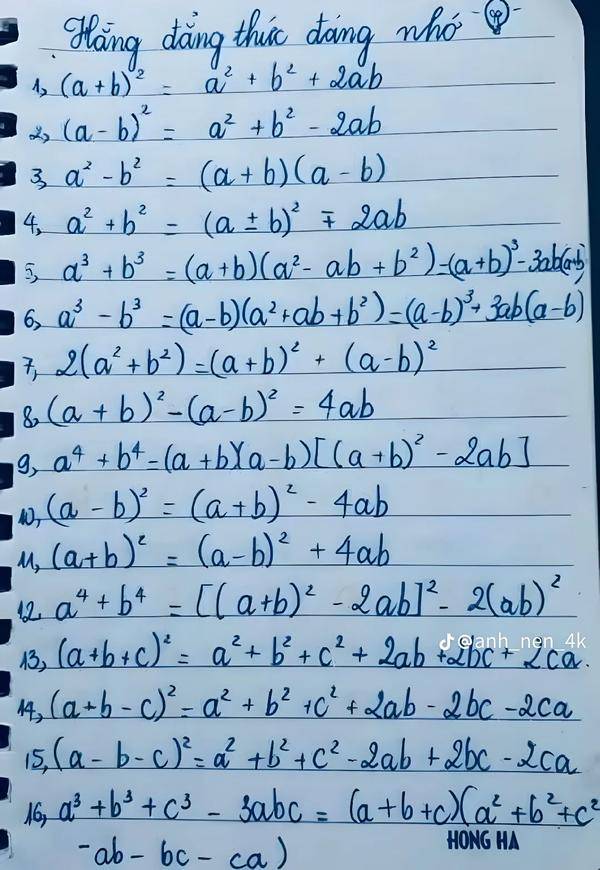 Hằng đẳng thức đáng nhớ
1, (a+b)² = a² + b² + 2ab
2, (a-b)² = a² + b² - 2ab
3, a² - b² = (a+b)(a-b)
4, a² + b² = (a ± b)² ∓ 2ab
5, a³ + b³ = (a+b)(a² - ab + b²) = (a+b)³ - 3ab(a+b)
6, a³ - b³ = (a-b)(a² + ab + b²) = (a-b)³ + 3ab(a-b)
7, 2(a² + b²) = (a+b)² + (a-b)²
8, (a+b)² - (a-b)² = 4ab
9, a⁴ + b⁴ = (a+b)(a-b)[(a+b)² - 2ab]
10, (a-b)² = (a+b)² - 4ab
11, (a+b)² = (a-b)² + 4ab
12, a⁴ + b⁴ = [(a+b)² - 2ab]² - 2(ab)²
@anh_nen_4k
13, (a+b+c)² = a² + b² + c² + 2ab + 2bc + 2ca.
14, (a+b-c)² = a² + b² + c² + 2ab - 2bc - 2ca
15, (a-b-c)² = a² + b² + c² - 2ab + 2bc - 2ca
16, a³ + b³ + c³ - 3abc = (a+b+c)(a² + b² + c²
-ab - bc - ca)
HONG HA